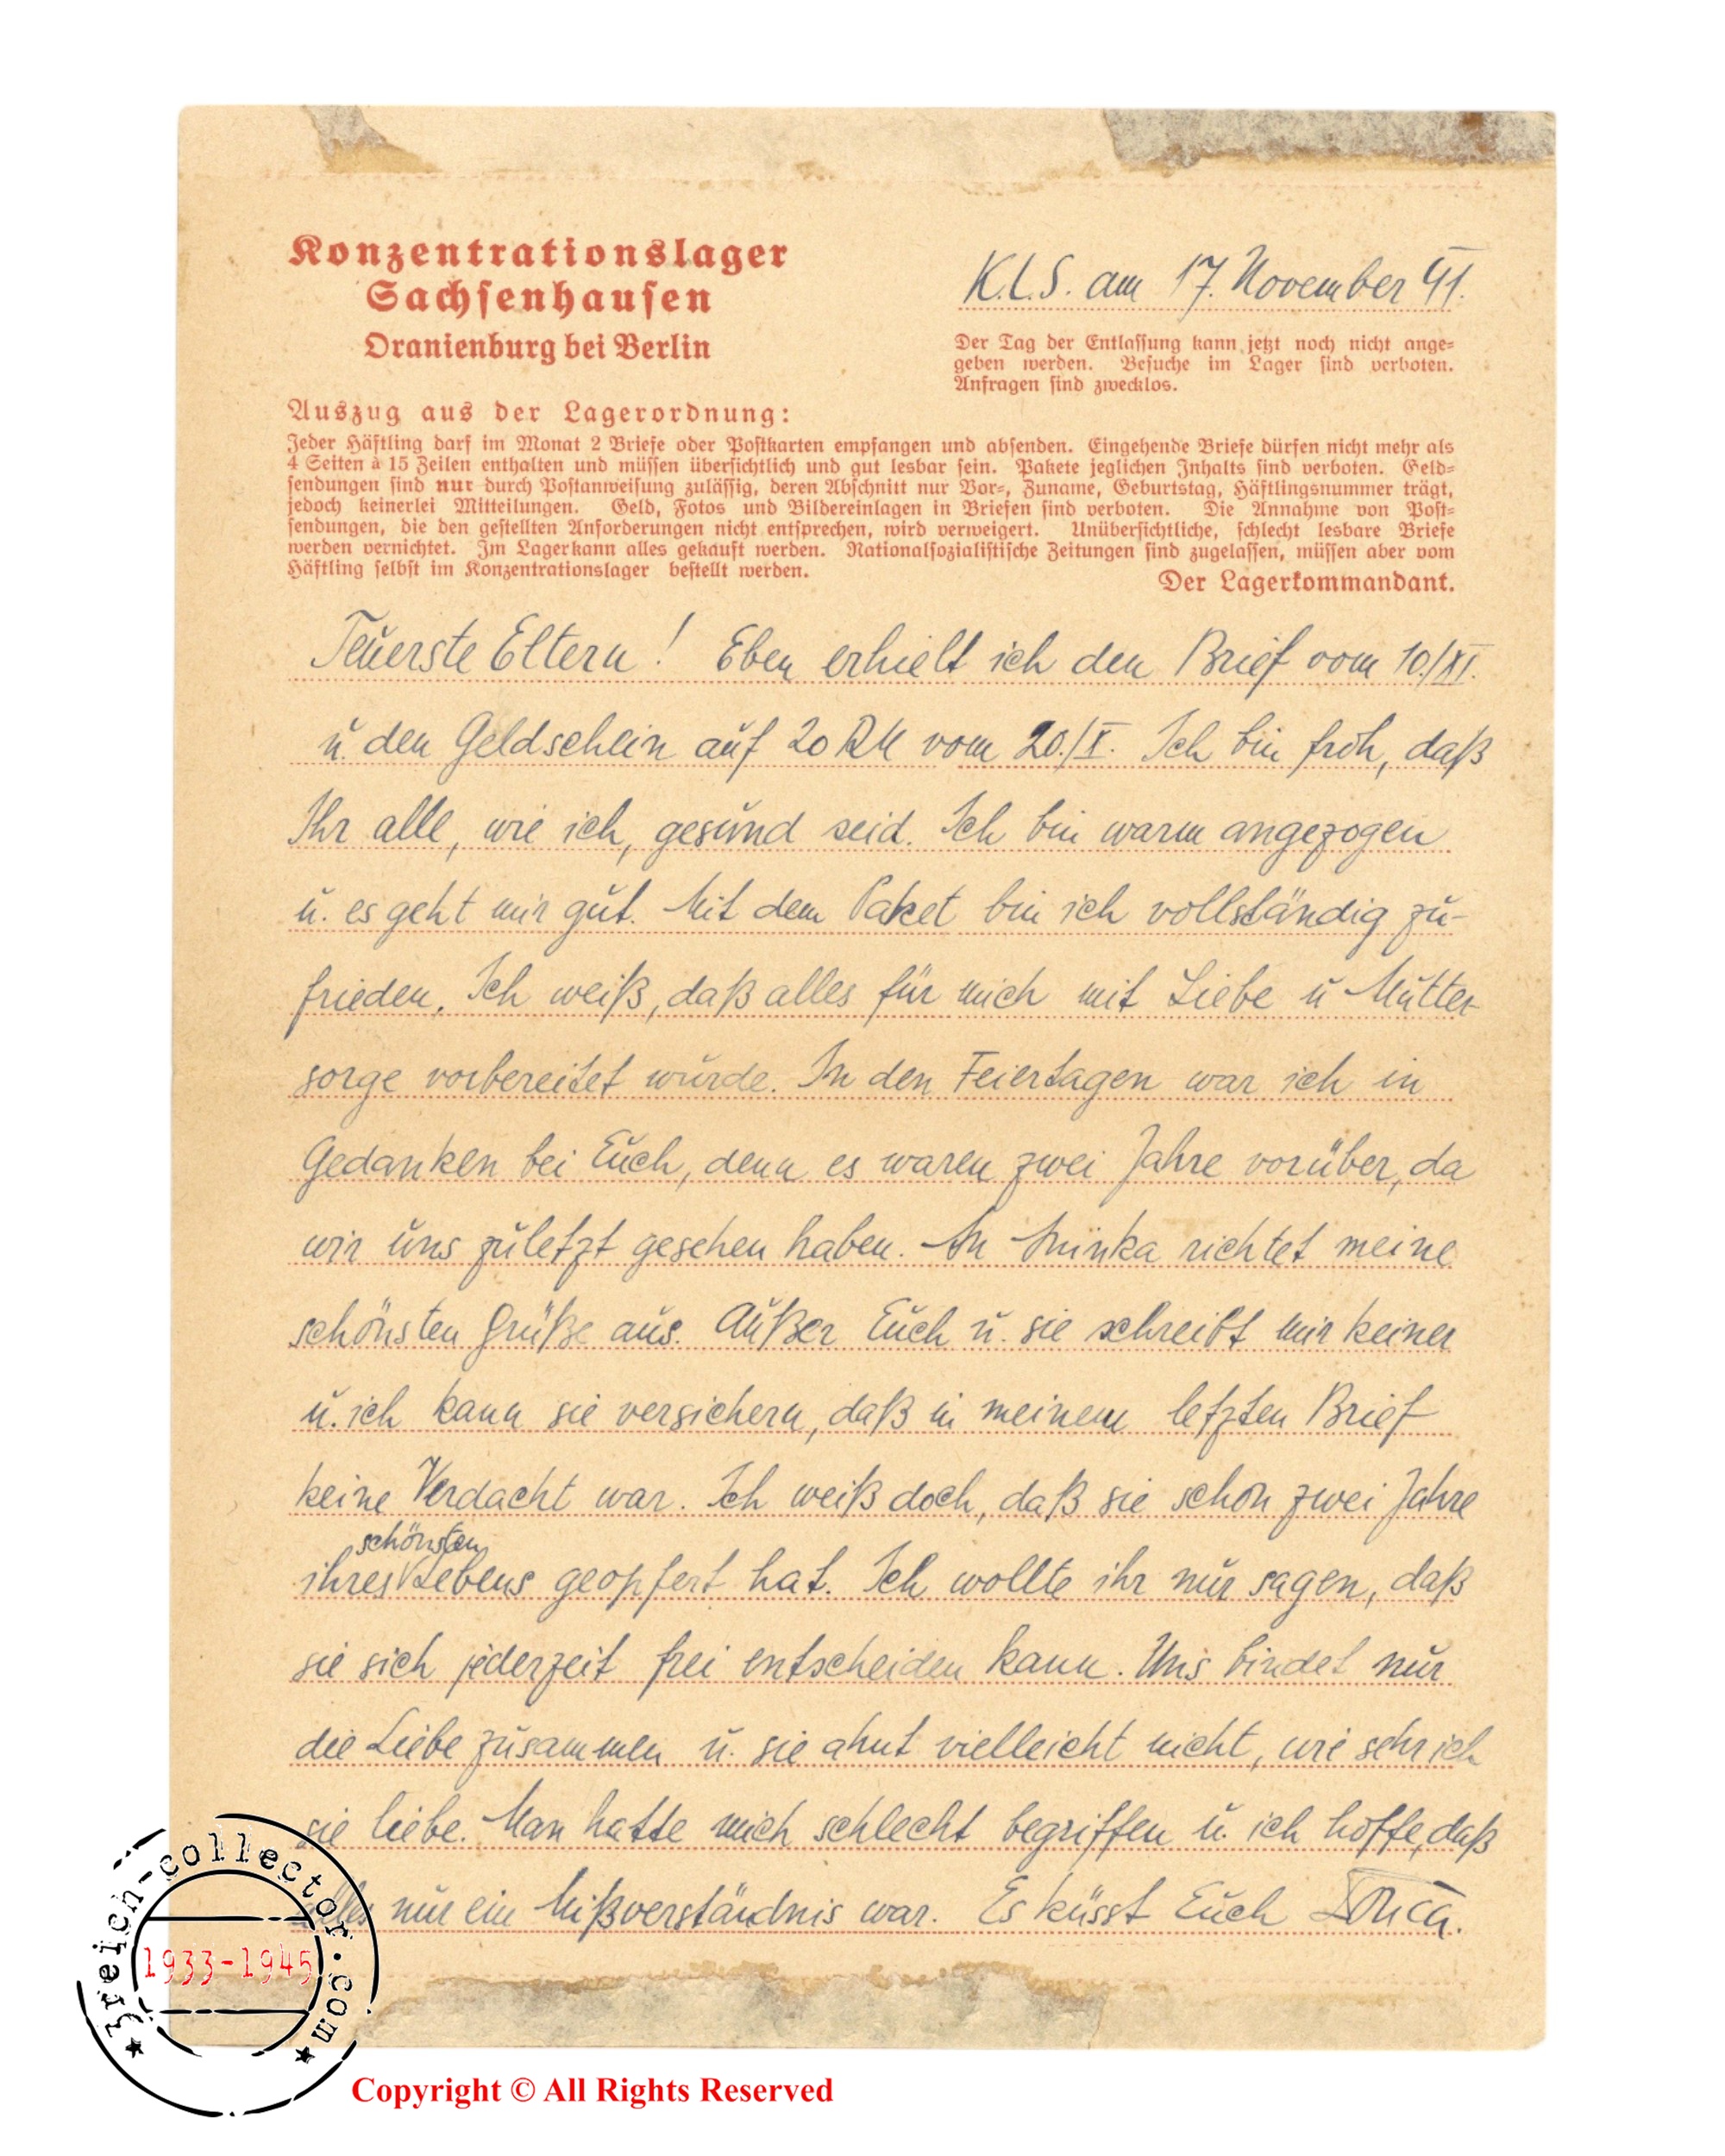 Konzentrationslager
Sachsenhausen
Oranienburg bei Berlin
K.L.S. am 17. November 41.
Der Tag der Entlassung kann jetzt noch nicht ange-
geben werden. Besuche im Lager sind verboten.
Anfragen sind zwecklos.
Auszug aus der Lagerordnung:
Jeder Häftling darf im Monat 2 Briefe oder Postkarten empfangen und absenden. Eingehende Briefe dürfen nicht mehr als
4 Seiten à 15 Zeilen enthalten und müssen übersichtlich und gut lesbar sein. Pakete jeglichen Inhalts sind verboten. Geld-
sendungen sind nur durch Postanweisung zulässig, deren Abschnitt nur Vor-, Zuname, Geburtstag, Häftlingsnummer trägt,
jedoch keinerlei Mitteilungen. Geld, Fotos und Bildereinlagen in Briefen sind verboten. Die Annahme von Post-
sendungen, die den gestellten Anforderungen nicht entsprechen, wird verweigert. Unübersichtliche, schlecht lesbare Briefe
werden vernichtet. Im Lager kann alles gekauft werden. Nationalsozialistische Zeitungen sind zugelassen, müssen aber vom
Häftling selbst im Konzentrationslager bestellt werden.
Der Lagerkommandant.
Teuerste Eltern! Eben erhielt ich den Brief vom 10./XI.
u. den Geldschein auf 20 RM vom 20./X. Ich bin froh, daß
Ihr alle, wie ich, gesund seid. Ich bin warm angezogen
u. es geht mir gut. Mit dem Paket bin ich vollständig zu-
frieden. Ich weiß, daß alles für mich mit Liebe u Mutter-
sorge vorbereitet wurde. In den Feiertagen war ich in
Gedanken bei Euch, denn es waren zwei Jahre vorüber, da
wir uns zuletzt gesehen haben. An Minka richtet meine
schönsten Grüße aus. Außer Euch u. sie schreibt mir keiner
u. ich kann sie versichern, daß in meinem letzten Brief
keine Verdacht war. Ich weiß doch, daß sie schon zwei Jahre
schönsten
ihres Lebens geopfert hat. Ich wollte ihr nur sagen, daß
sie sich jederzeit frei entscheiden kann. Uns bindet nur
die Liebe zusammen u. sie ahnt vielleicht nicht, wie sehr ich
sie liebe. Man hatte mich schlecht begriffen u. ich hoffe, daß
alles nur ein Mißverständnis war. Es küsst Euch
3reich-collector.com
1933-1945
Copyright © All Rights Reserved